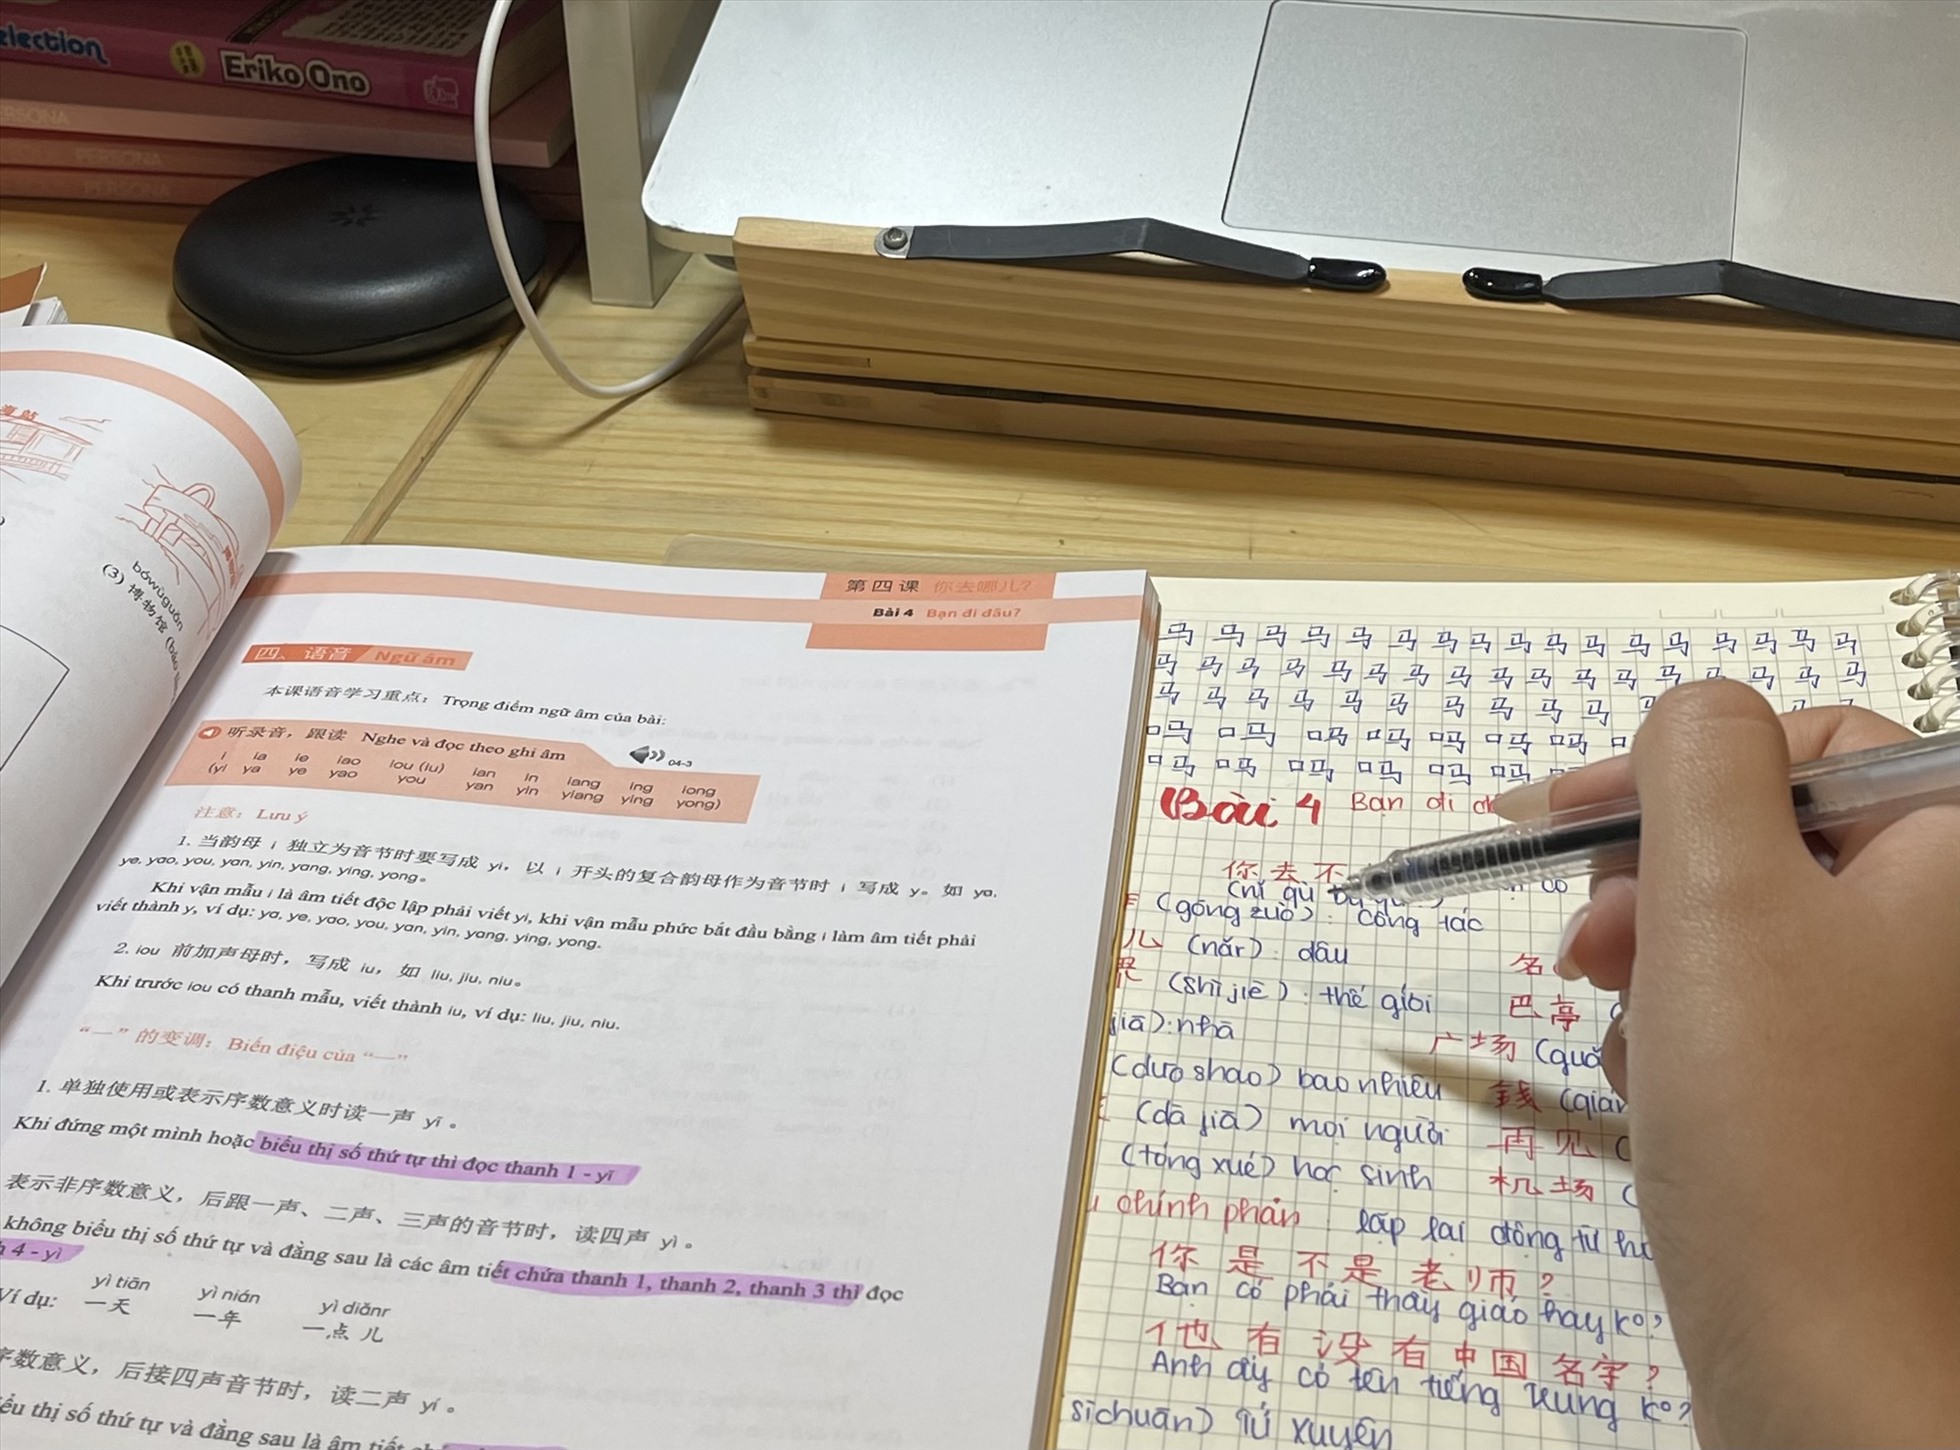 election
Eriko Ono
PERSONA
PERSONA
PERSONA
bówùguǎn
(3) 博物馆 (bảo
第四课 你去哪儿?
Bài 4 Bạn đi đâu?
四、语音 / Ngữ âm
本课语音学习重点: Trọng điểm ngữ âm của bài:
听录音，跟读 Nghe và đọc theo ghi âm 04-3
i ia ie iao iou (iu) ian in iang ing iong
(yi ya ye yao you yan yin yiang ying yong)
注意: Lưu ý
1. 当韵母 i 独立为音节时要写成 yi，以 i 开头的复合韵母作为音节时 i 写成 y。如 ya,
ye, yao, you, yan, yin, yang, ying, yong。
Khi vận mẫu i là âm tiết độc lập phải viết yi, khi vận mẫu phức bắt đầu bằng i làm âm tiết phải
viết thành y, ví dụ: ya, ye, yao, you, yan, yin, yang, ying, yong.
2. iou 前加声母时，写成 iu，如 liu, jiu, niu。
Khi trước iou có thanh mẫu, viết thành iu, ví dụ: liu, jiu, niu.
“一”的变调: Biến điệu của “一”
1. 单独使用或表示序数意义时读一声 yī。
Khi đứng một mình hoặc biểu thị số thứ tự thì đọc thanh 1 - yī
表示非序数意义，后跟一声、二声、三声的音节时，读四声 yì。
không biểu thị số thứ tự và đằng sau là các âm tiết chứa thanh 1, thanh 2, thanh 3 thì đọc
4 - yì
yì tiān yì nián yì diǎnr
Ví dụ: 一天 一年 一点儿
序数意义，后接四声音节时，读二声 yí。
ểu thị số thứ tự và đằng sau là âm tiết
马 马 马 马 马 马 马 马 马 马 马 马 马 马 马 马 马
马 马 马 马 马 马 马 马 马 马 马 马 马 马 马 马 马
马 马 马 马 马 马 马 马 马 马
吗 吗 吗 吗 吗 吗 吗
吗 吗 吗 吗 吗 吗
Bài 4 Bạn đi
你去不
(nǐ qù
(gōng zuò): công tác
儿 (nǎr): đâu 名
(shì jiè): thế giới 巴亭
jiā): nhà 广场 (quǎ
(duō shao) bao nhiêu 錢 (qián
(dà jiā) mọi người 再见 (
(tóng xué) học sinh 机场 (
chính phản: lặp lại động từ
你是不是老师?
Bạn có phải thầy giáo hay ko?
他有没有中国名字?
Anh ấy có tên tiếng trung ko?
sìchuān) Tứ Xuyên